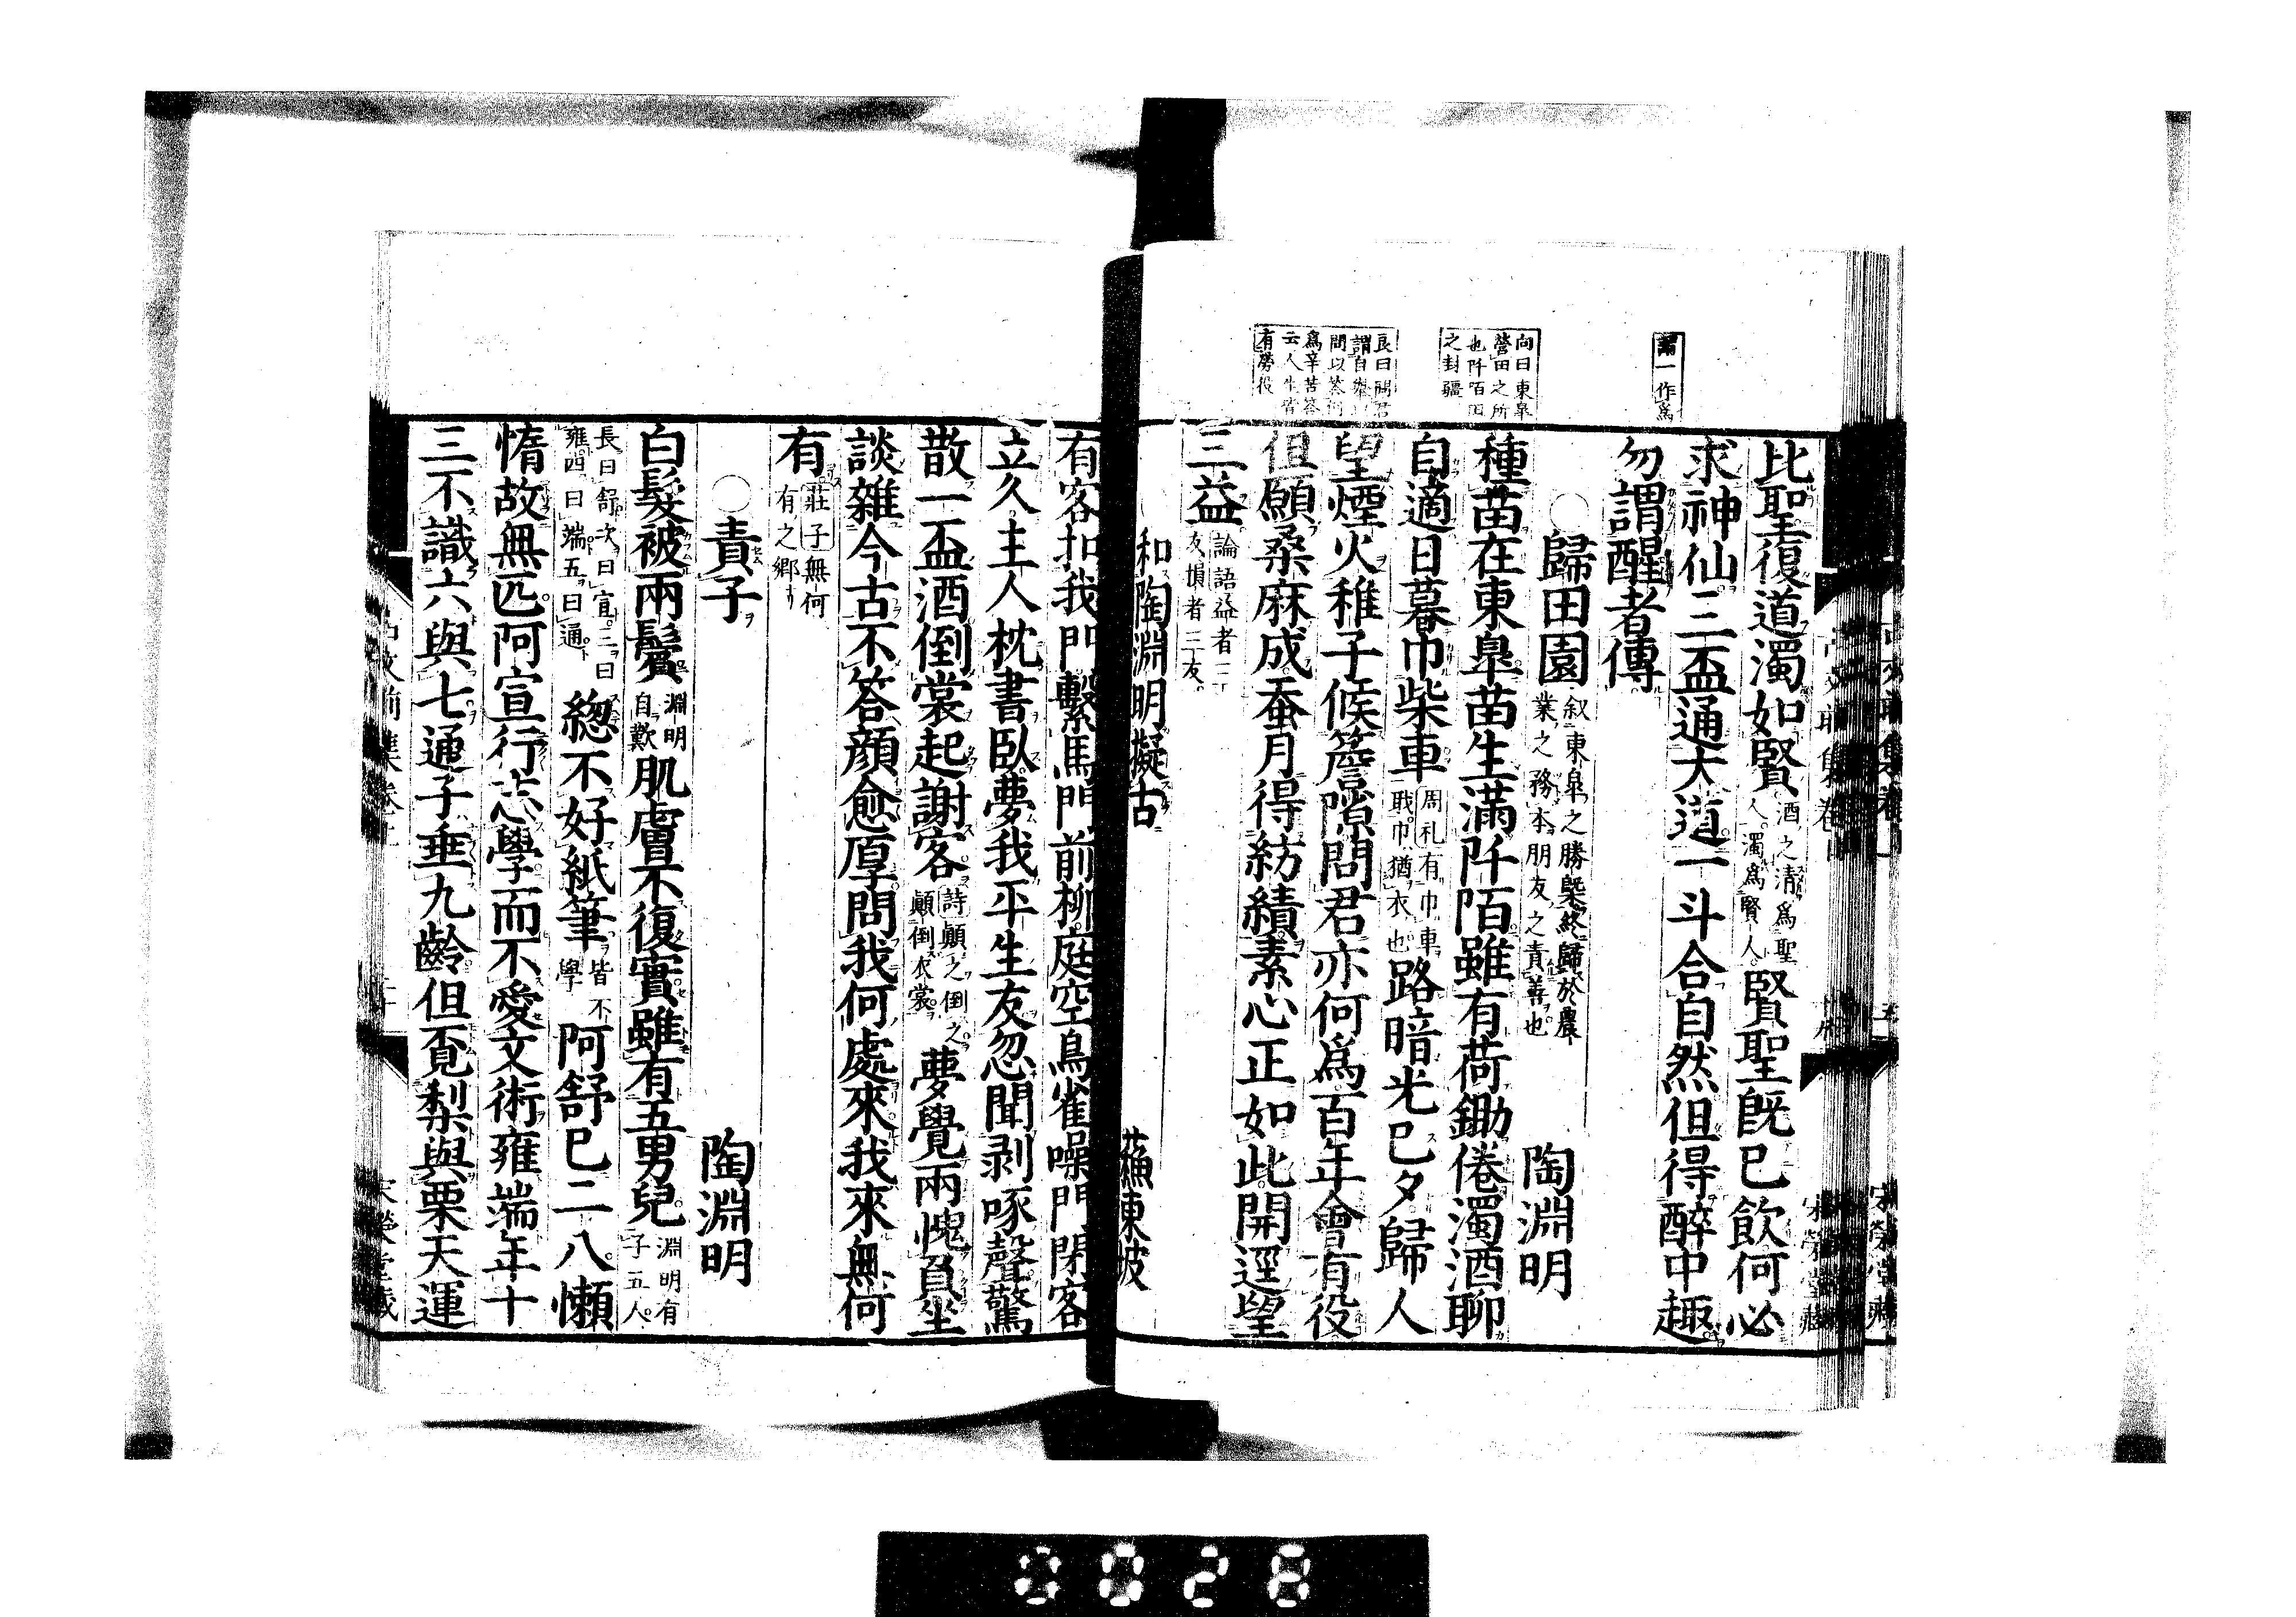 謂一作爲
向曰東皐
營田之所
也阡陌田
之封疆
良曰問君
謂自擧
問以答何
爲辛苦答
云人生皆
有勞役
比聖復道濁如賢酒之清爲聖人濁爲賢人賢聖旣已飲何必
求神仙三盃通大道一斗合自然但得醉中趣
勿謂醒者傳
○歸田園叙東皐之勝槩終歸於農業之務本朋友之責善也 陶淵明
種苗在東皐苗生滿阡陌雖有荷鋤倦濁酒聊
自適日暮巾柴車周礼有巾車戢巾猶衣也路暗光已夕歸人
望煙火稚子候簷隙問君亦何爲百年會有役
但願桑麻成蚕月得紡績素心正如此開逕望
三益論語益者三友損者三友
和陶淵明擬古 蘇東坡
有客扣我門繫馬門前柳庭空鳥雀噪門閉客
立久主人枕書臥夢我平生友忽聞剥啄聲驚
散一盃酒倒裳起謝客詩顚之倒之顚倒衣裳夢覺兩愧負坐
談雜今古不答顏愈厚問我何處來我來無何
有莊子無何有之鄉
○責子 陶淵明
白髮被兩鬢淵明自歎肌膚不復實雖有五男兒淵明有子五人
長曰舒次曰宣三曰雍四曰端五曰通總不好紙筆皆不學阿舒已二八懶
惰故無匹阿宣行志學而不愛文術雍端年十
三不識六與七通子垂九齡但覓梨與栗天運
宋榮堂藏
0028